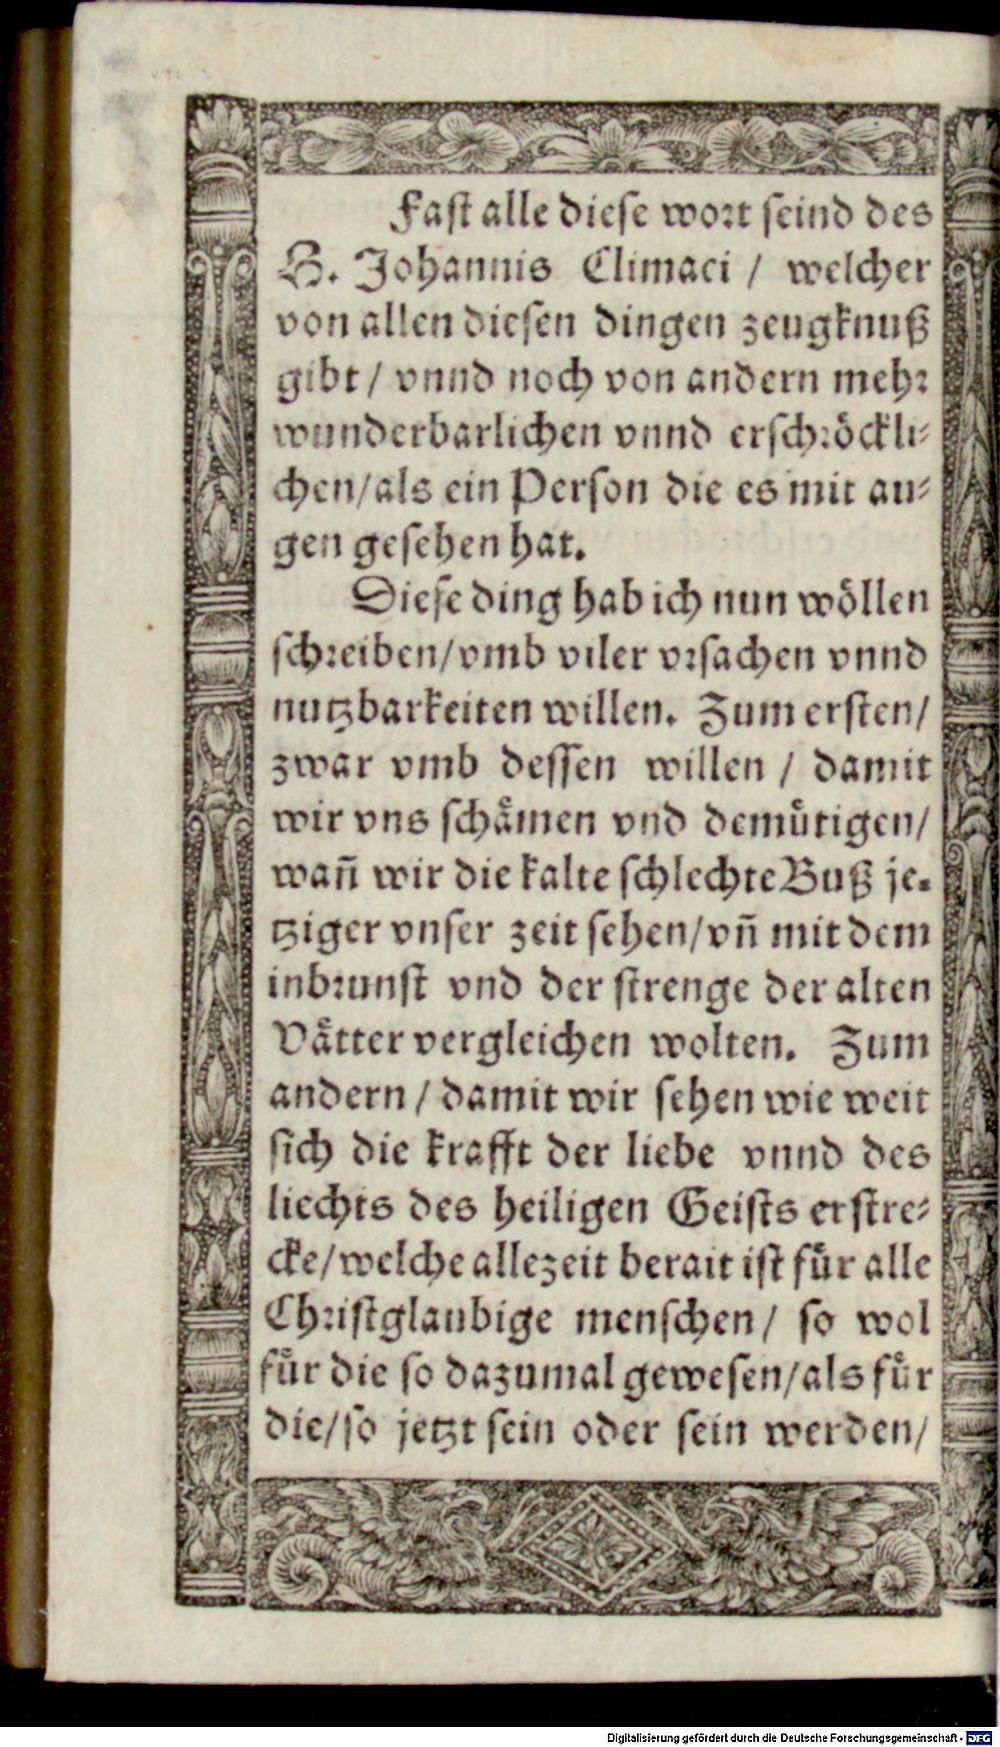 Fast alle diese wort seind des
H. Johannis Climaci / welcher
von allen diesen dingen zeugknuß
gibt / vnnd noch von andern mehr
wunderbarlichen vnnd erschröckli-
chen/als ein Person die es mit au-
gen gesehen hat.
Diese ding hab ich nun wöllen
schreiben/vmb viler vrsachen vnnd
nutzbarkeiten willen. Zum ersten/
zwar vmb dessen willen / damit
wir vns schämen vnd demütigen/
wañ wir die kalte schlechte Buß je-
tziger vnser zeit sehen/vñ mit dem
inbrunst vnd der strenge der alten
Vätter vergleichen wolten. Zum
andern / damit wir sehen wie weit
sich die krafft der liebe vnnd des
liechts des heiligen Geists erstre-
cke/welche allezeit berait ist für alle
Christglaubige menschen / so wol
für die so dazumal gewesen/als für
die/so jetzt sein oder sein werden/
Digitalisierung gefördert durch die Deutsche Forschungsgemeinschaft - DFG